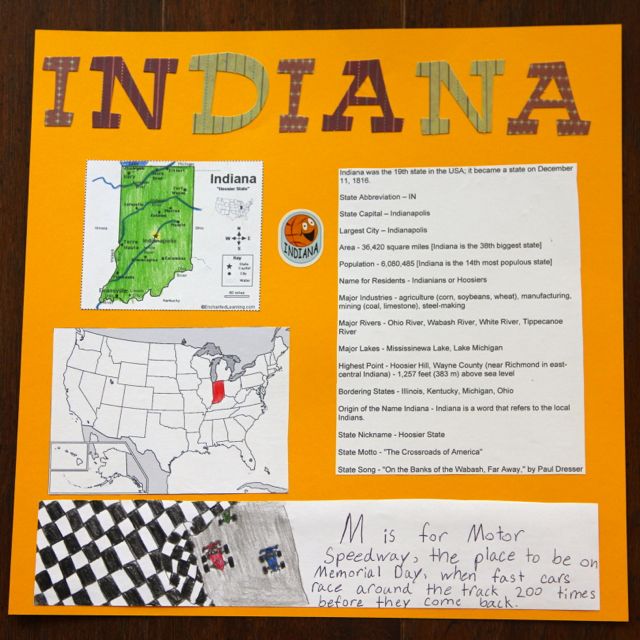 INDIANA
Indiana
"Hoosier State"
Michigan
Illinois
Ohio
Indianapolis
Terre
Haute
Columbus
Evansville
Kentucky
Key
State
Capital
City
Water
©EnchantedLearning.com
INDIANA
Indiana was the 19th state in the USA; it became a state on December
11, 1816.
State Abbreviation – IN
State Capital – Indianapolis
Largest City – Indianapolis
Area - 36,420 square miles [Indiana is the 38th biggest state]
Population - 6,080,485 [Indiana is the 14th most populous state]
Name for Residents - Indianians or Hoosiers
Major Industries - agriculture (corn, soybeans, wheat), manufacturing,
mining (coal, limestone), steel-making
Major Rivers - Ohio River, Wabash River, White River, Tippecanoe
River
Major Lakes - Mississinewa Lake, Lake Michigan
Highest Point - Hoosier Hill, Wayne County (near Richmond in east-
central Indiana) - 1,257 feet (383 m) above sea level
Bordering States - Illinois, Kentucky, Michigan, Ohio
Origin of the Name Indiana - Indiana is a word that refers to the local
Indians.
State Nickname - Hoosier State
State Motto - "The Crossroads of America"
State Song - "On the Banks of the Wabash, Far Away," by Paul Dresser
M is for Motor
Speedway, the place to be on
Memorial Day, when fast cars
race around the track 200 times
before they come back.